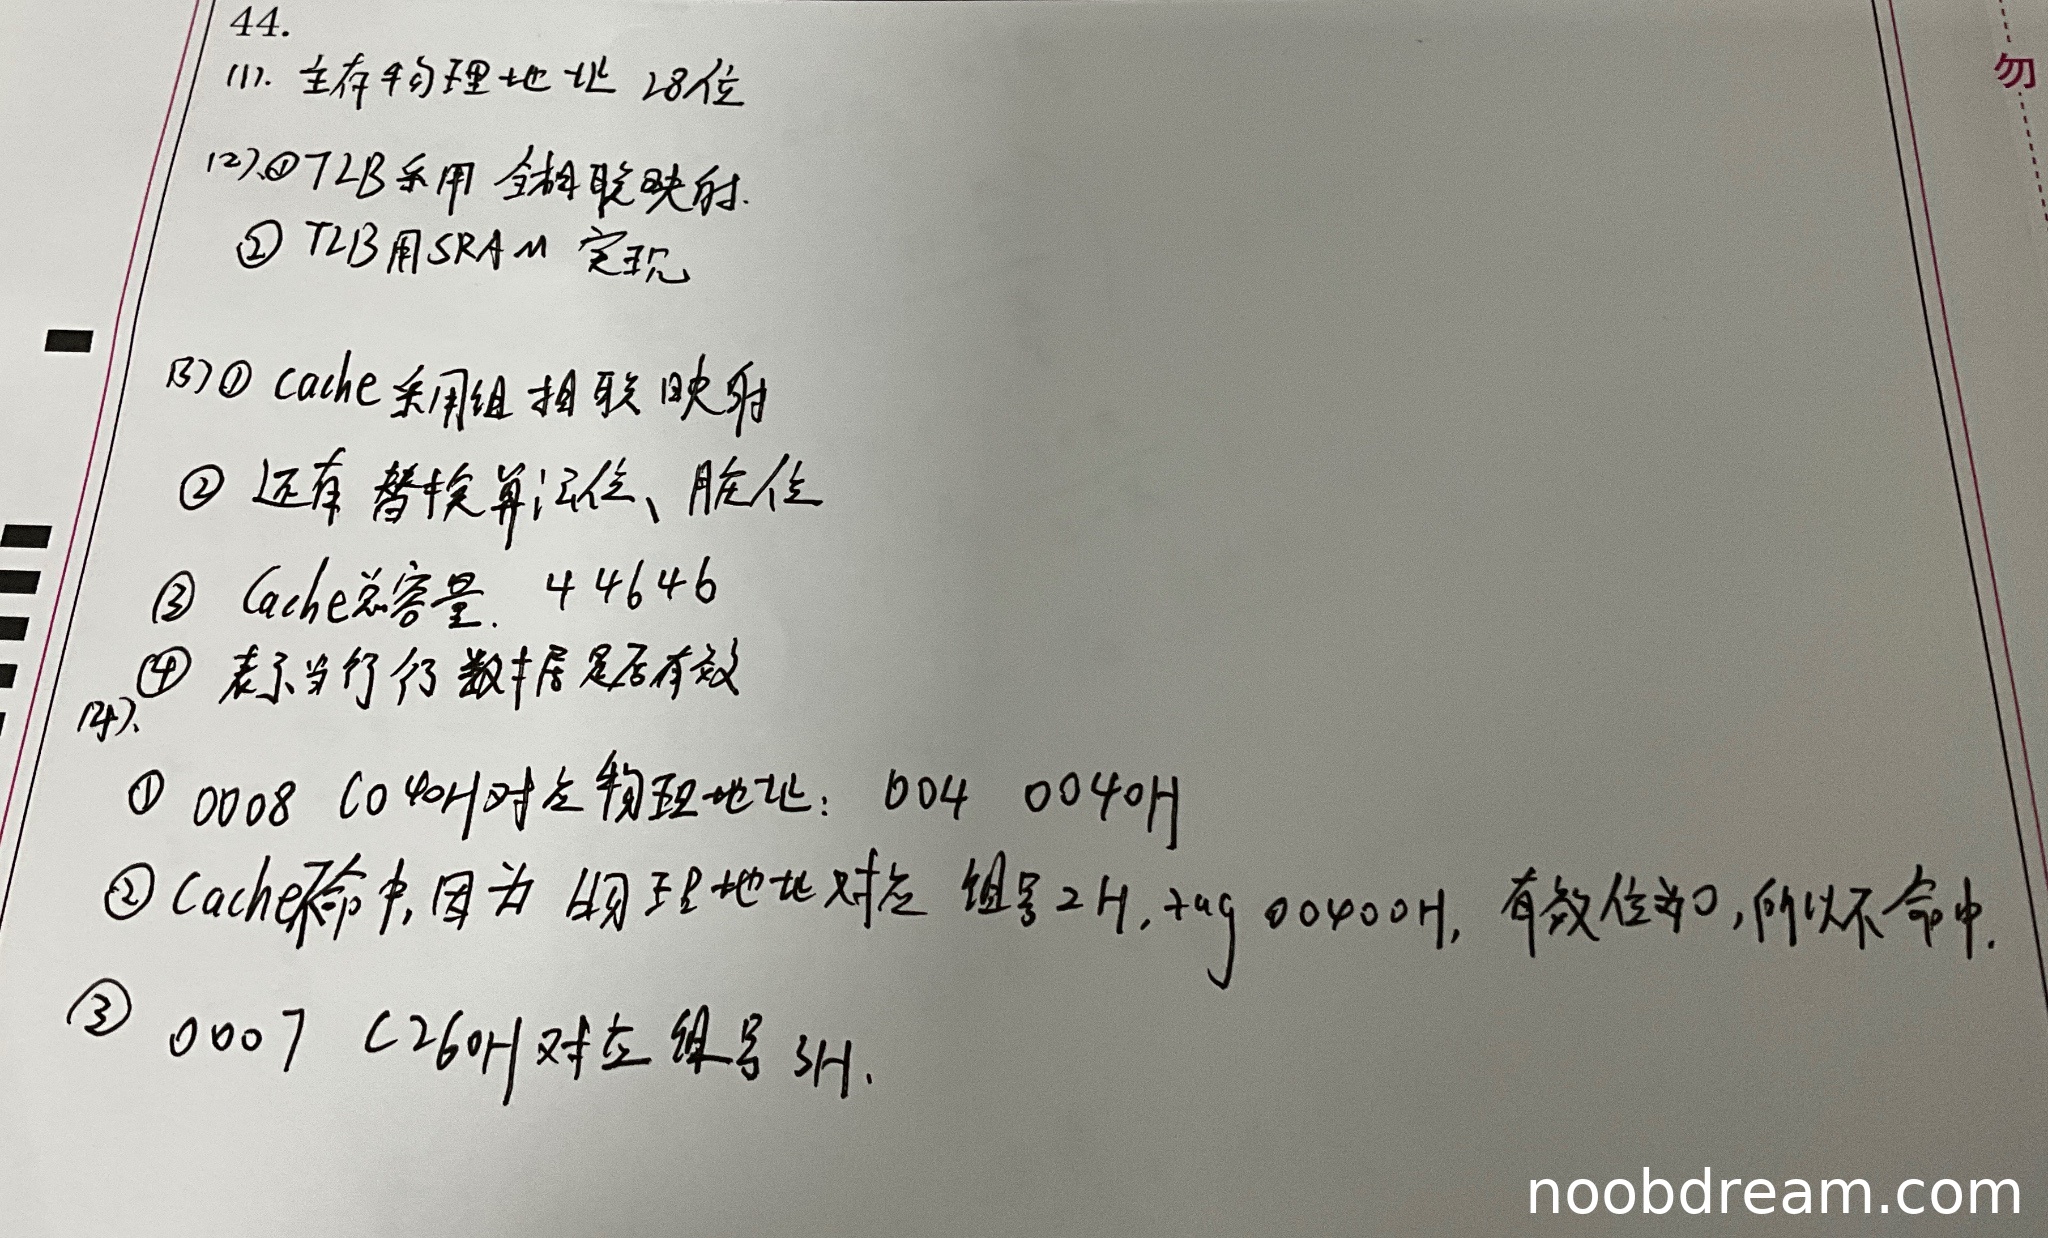 44.
(1). 主存物理地址 28位
(2).①TLB采用 全相联映射.
② TLB用SRAM 实现
(3)① Cache采用组相联映射
② 还有 替换算法位、脏位
③ Cache总容量. 44646
④ 表示当行行数据是否有效
(4).
① 0008 C040H对应物理地址: 004 0040H
② Cache不命中,因为 物理地址对应 组号2H, tag 00400H, 有效位为0,所以不命中.
③ 0007 C260H对应组号 3H.
勿
noobdream.com